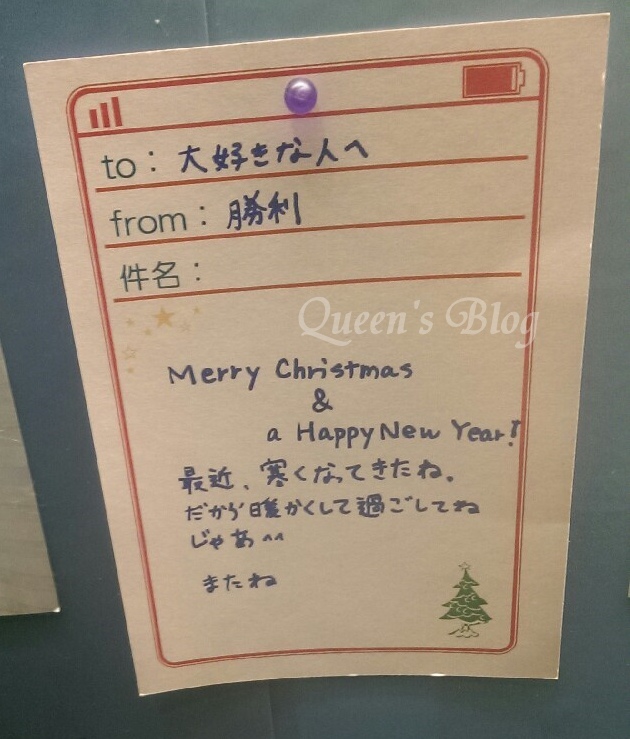 to： 大好きな人へ
from： 勝利
件名：
Queen's Blog
Merry Christmas
&
a Happy New Year!
最近、寒くなってきたね。
だから暖かくして過ごしてね
じゃあ^^
またね